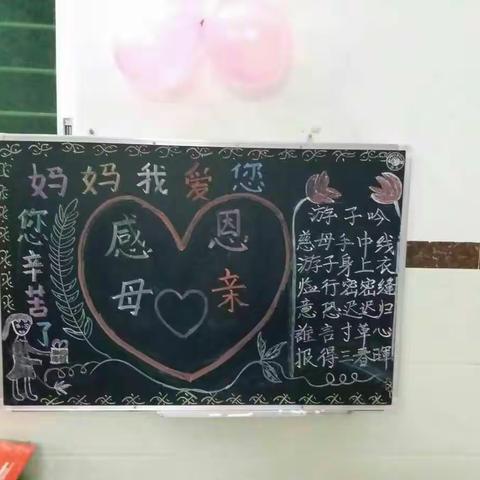 妈妈我爱您
您辛苦了
感恩
母亲
游子吟
慈母手中线
游子身上衣
临行密密缝
意恐迟迟归
誰言寸草心
报得三春暉